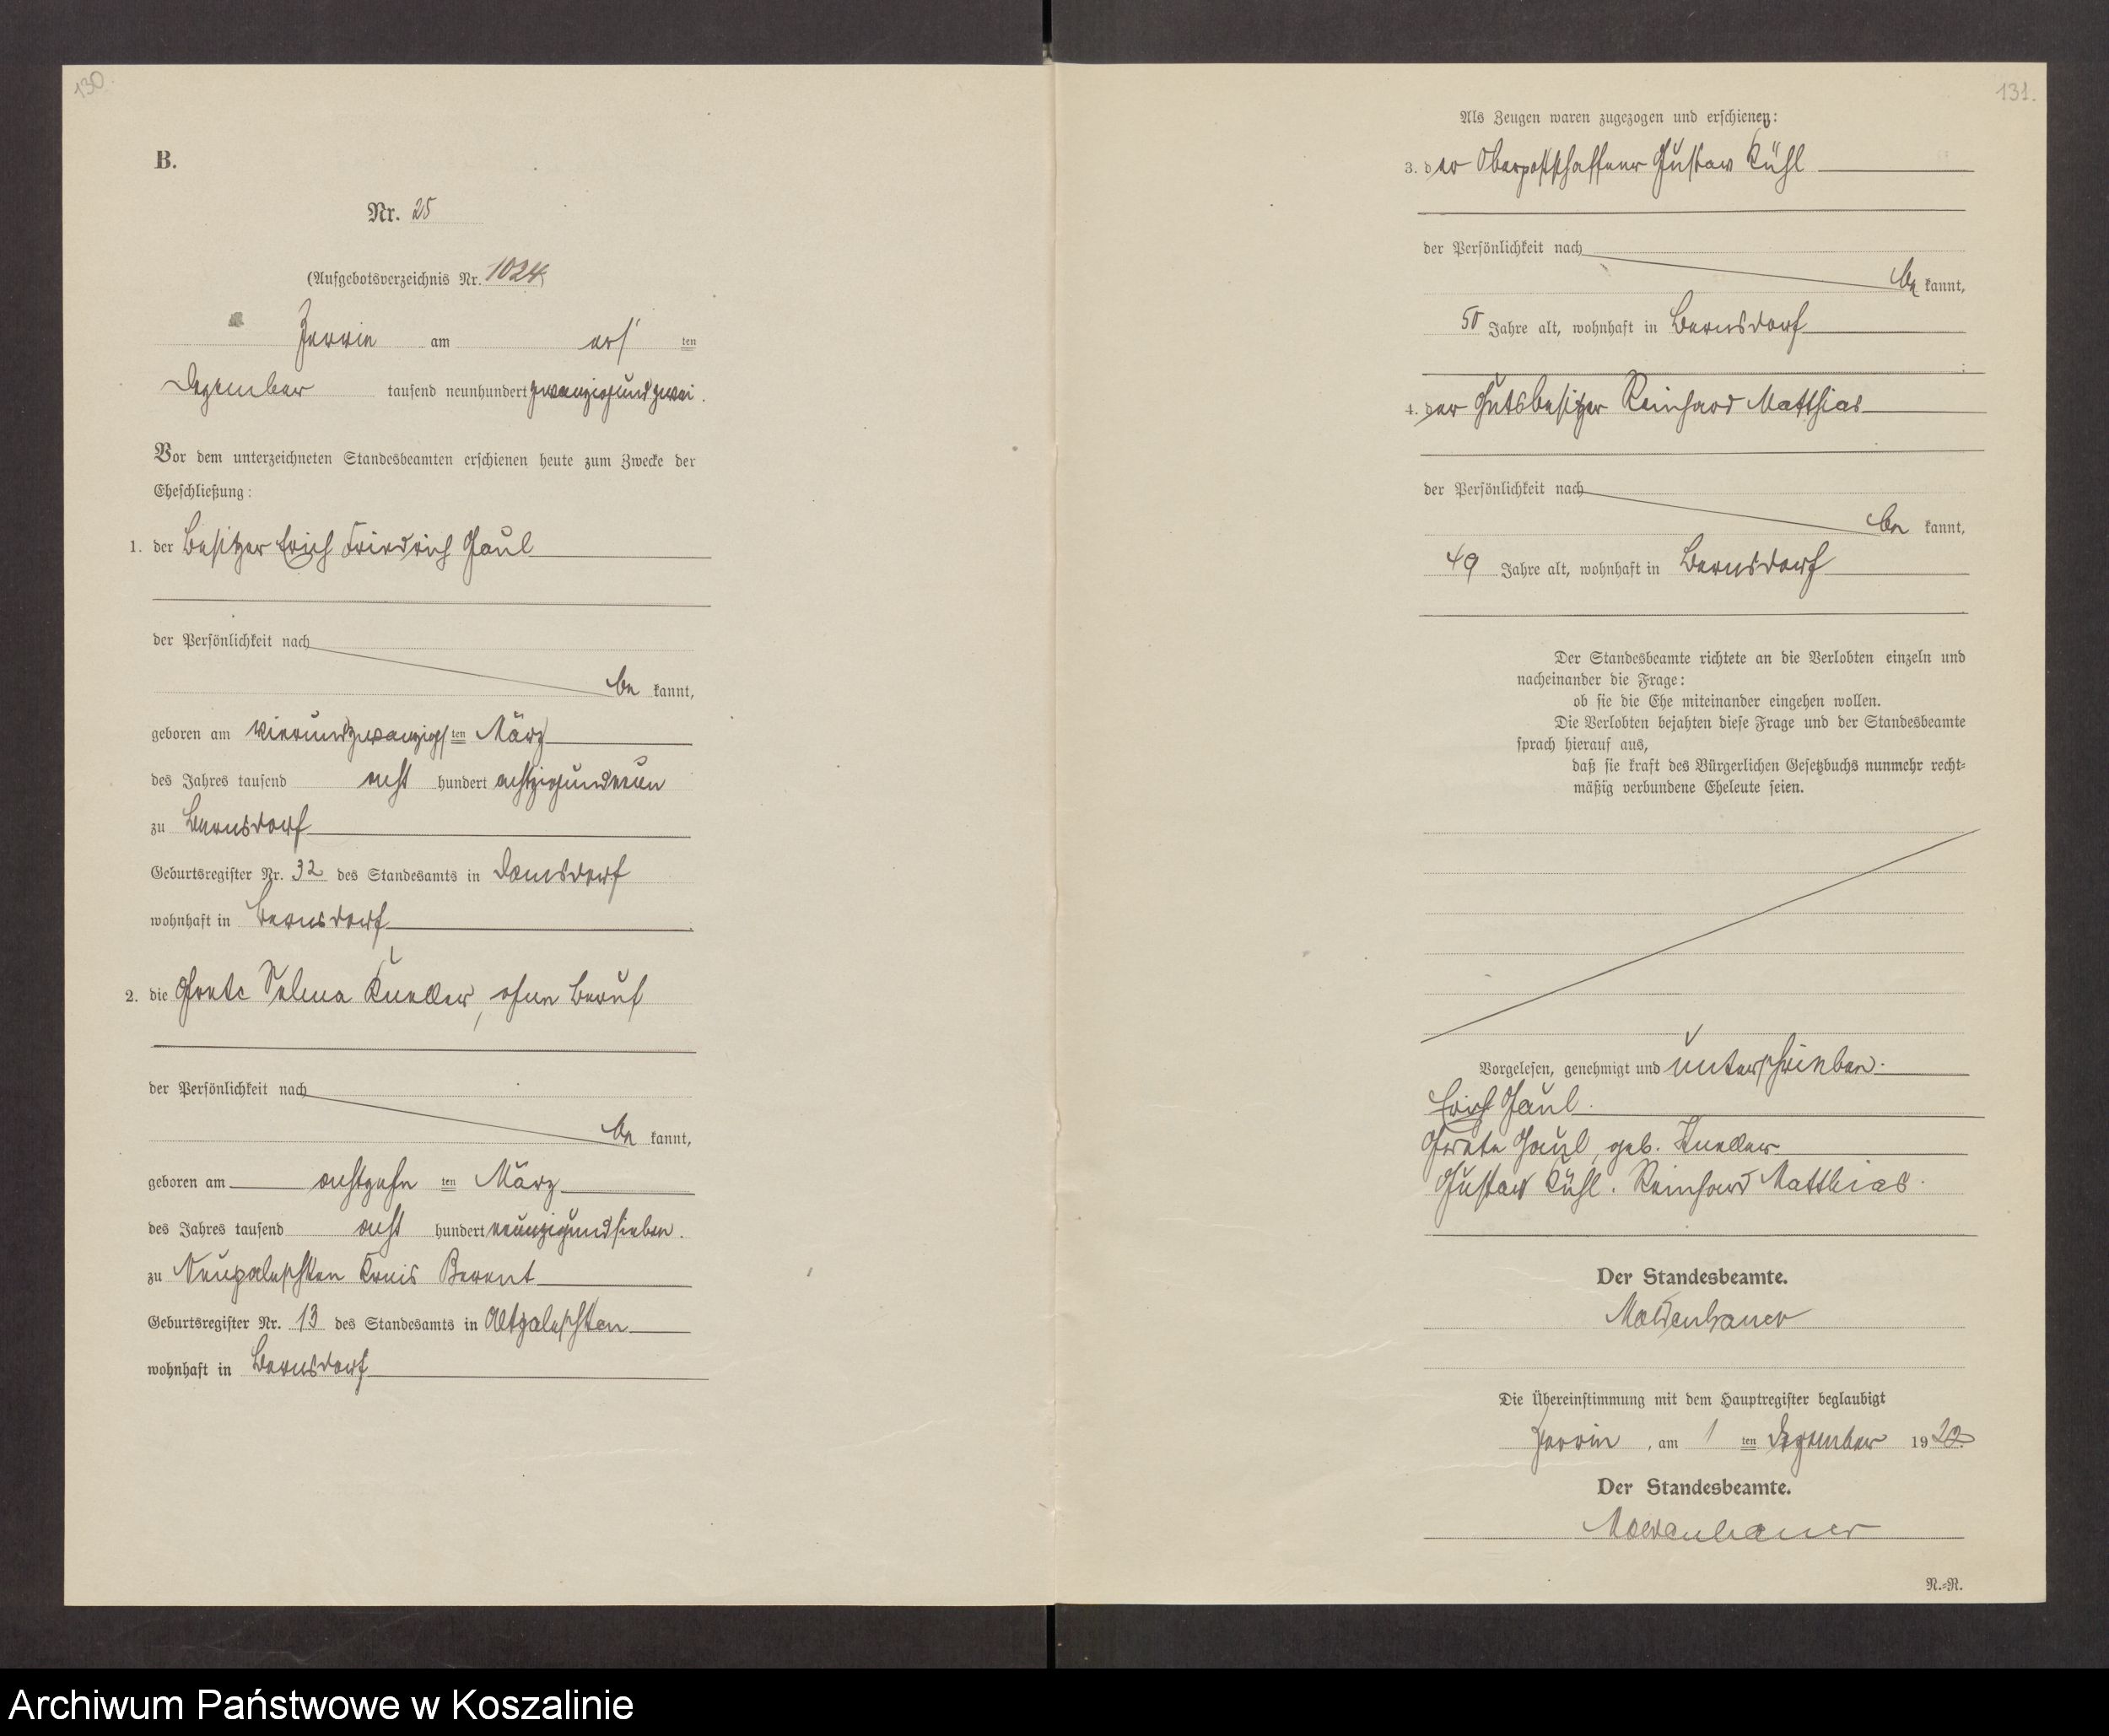 130.
B.
Nr. 25
(Aufgebotsverzeichnis Nr. 1024)
Zerrin am ers ten
Dezember tausend neunhundert zwanzigundzwei.
Vor dem unterzeichneten Standesbeamten erschienen heute zum Zwecke der
Eheschließung:
1. der Besitzer Erich Friedrich Gaul
der Persönlichkeit nach
be kannt,
geboren am vierundzwanzigs ten März
des Jahres tausend acht hundert achtzigundneun
zu Bernsdorf
Geburtsregister Nr. 32 des Standesamts in Damsdorf
wohnhaft in Bernsdorf
2. die Grete Selma Kueller, ohne Beruf
der Persönlichkeit nach
be kannt,
geboren am achtzehn ten März
des Jahres tausend acht hundert neunzigundsieben.
zu Neupaleschken Kreis Berent
Geburtsregister Nr. 13 des Standesamts in Altpaleschken
wohnhaft in Bernsdorf
131.
Als Zeugen waren zugezogen und erschienen:
3. der Oberpostschaffner Gustav Kühl
der Persönlichkeit nach
be kannt,
50 Jahre alt, wohnhaft in Bernsdorf
;
4. der Gutsbesitzer Reinhard Matthias
der Persönlichkeit nach
be kannt,
49 Jahre alt, wohnhaft in Bernsdorf
Der Standesbeamte richtete an die Verlobten einzeln und
nacheinander die Frage:
ob sie die Ehe miteinander eingehen wollen.
Die Verlobten bejahten diese Frage und der Standesbeamte
sprach hierauf aus,
daß sie kraft des Bürgerlichen Gesetzbuchs nunmehr recht-
mäßig verbundene Eheleute seien.
Vorgelesen, genehmigt und unterschrieben.
Erich Gaul.
Grete Gaul, geb. Kueller
Gustav Kühl. Reinhard Matthias.
Der Standesbeamte.
Moldenhauer
Die Übereinstimmung mit dem Hauptregister beglaubigt
Zerrin, am 1 ten Dezember 1922.
Der Standesbeamte.
Moldenhauer
N.-R.
Archiwum Państwowe w Koszalinie